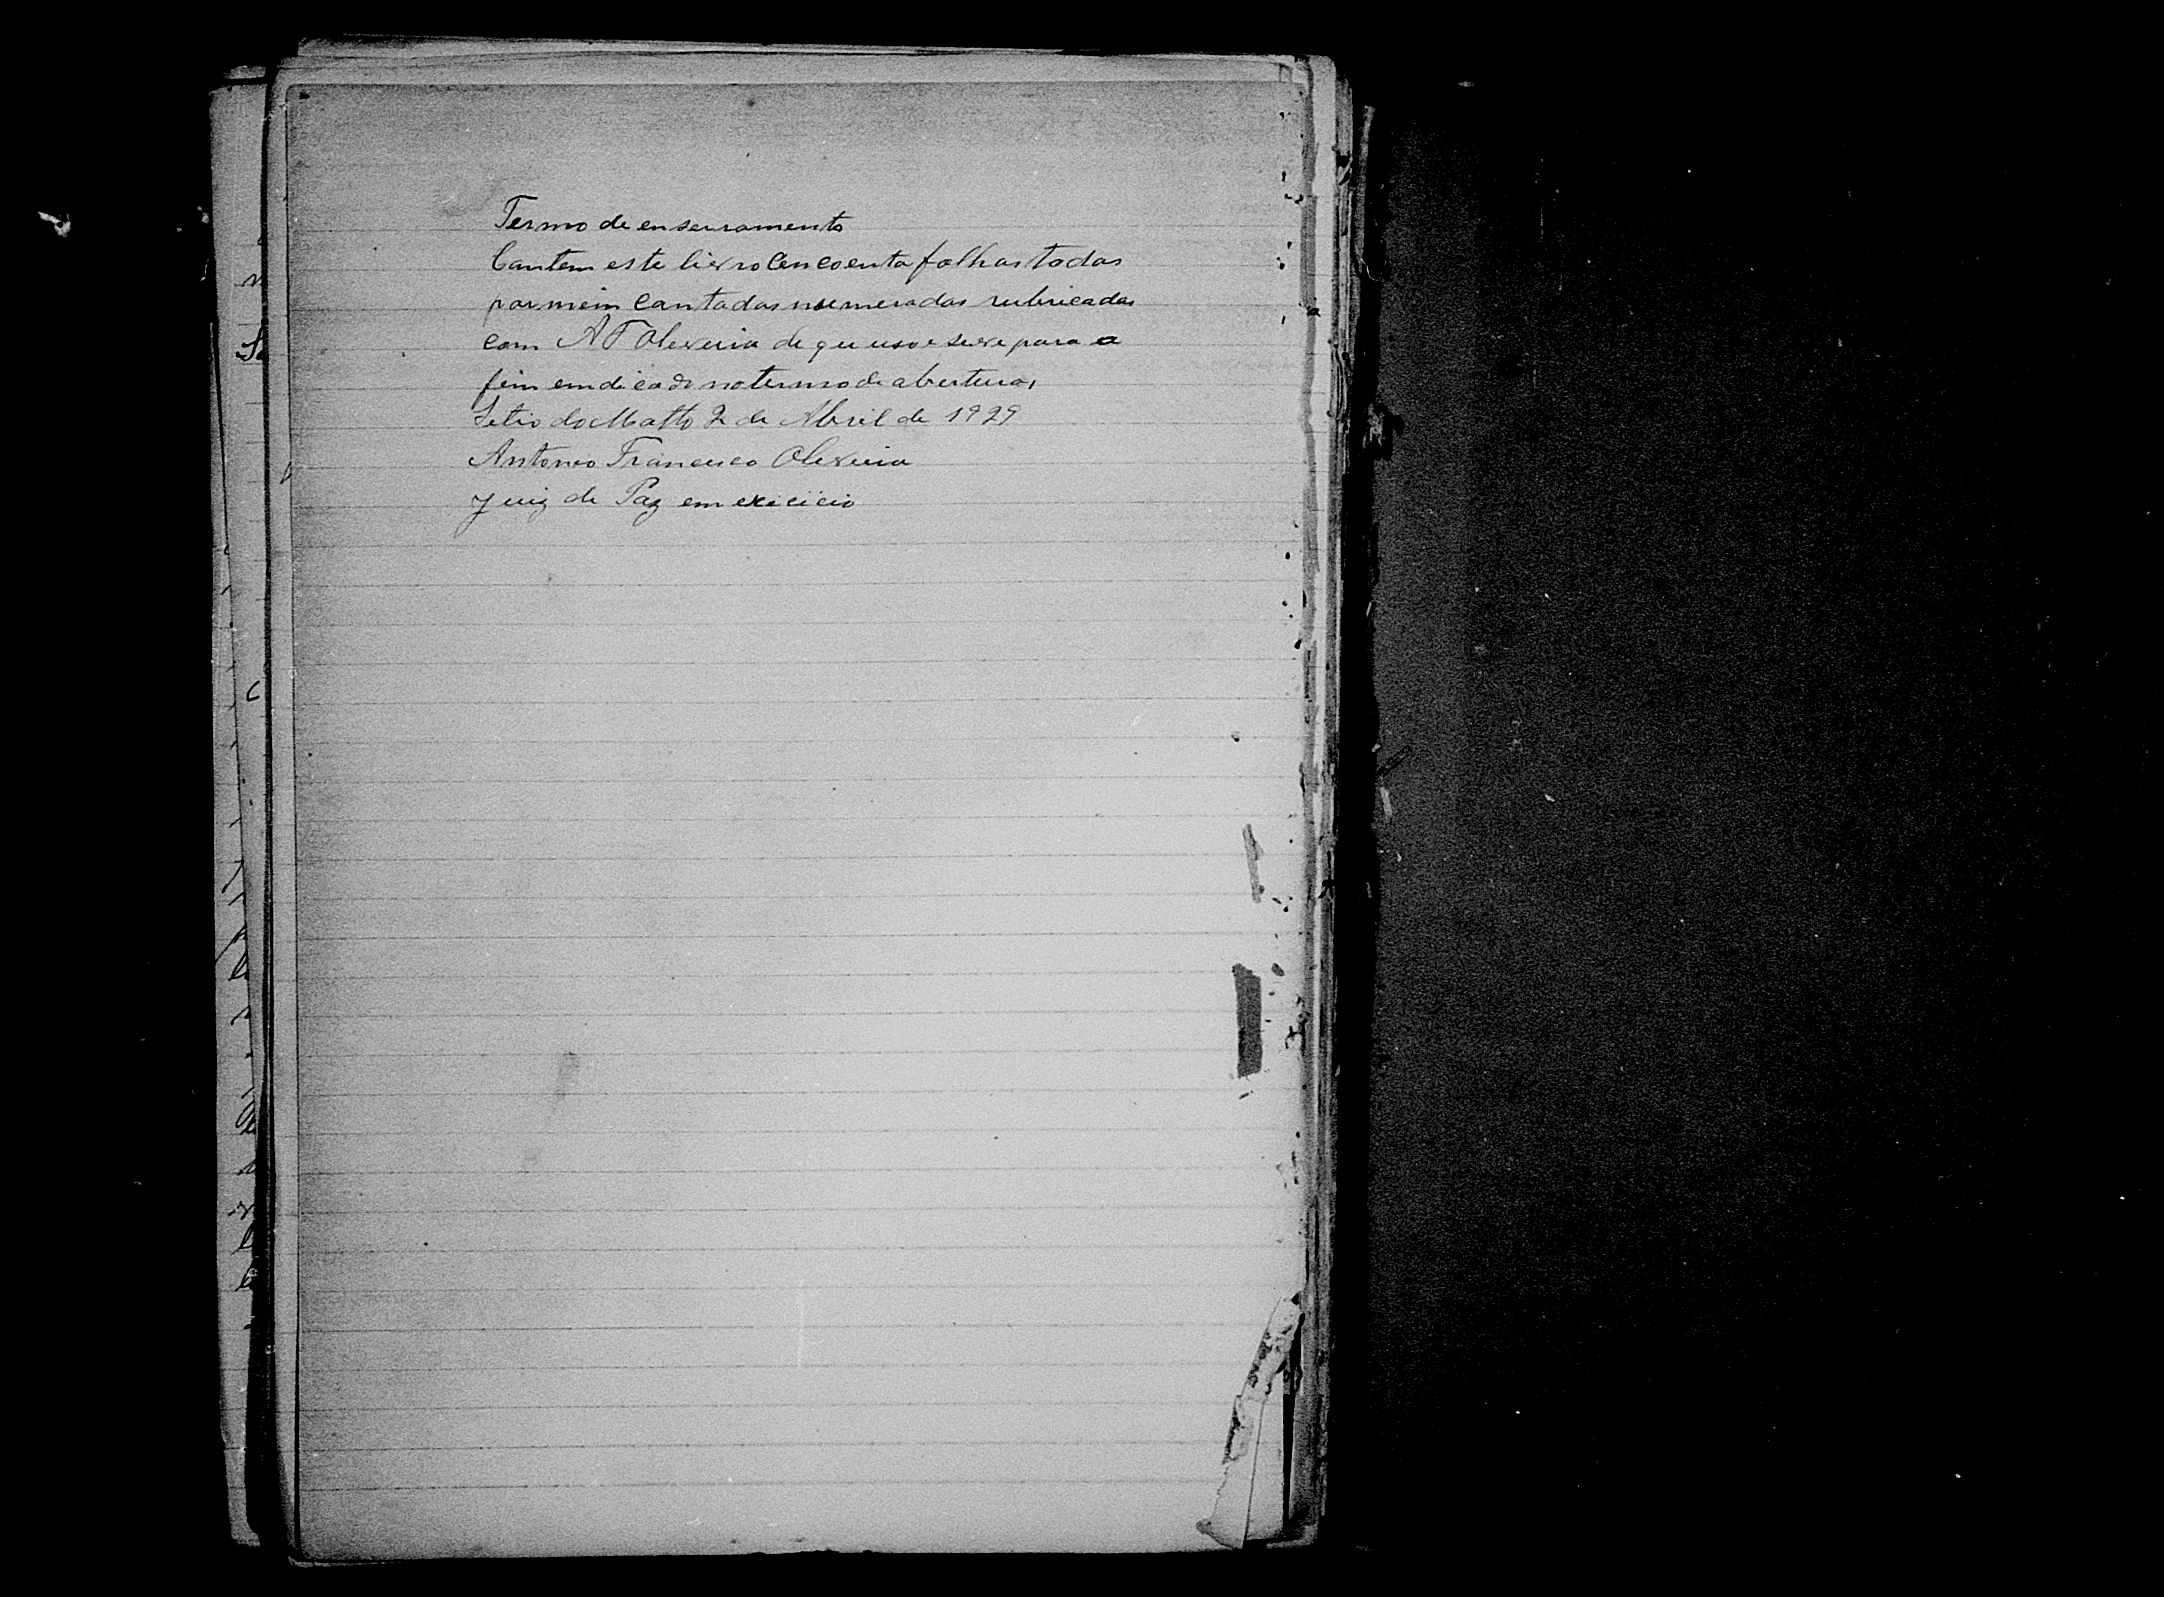 Termo de enserramento
Contem este livro Cencoenta folhas todas
por mein contadas numeradas rubricadas
com A F Oleveira de que uso e serve para o
fim emdicado no termo de abertura,
Setio do Matto 2 de Abril de 1929
Antoneo Francisco Oleveira
Juiz de Paz em exicicio